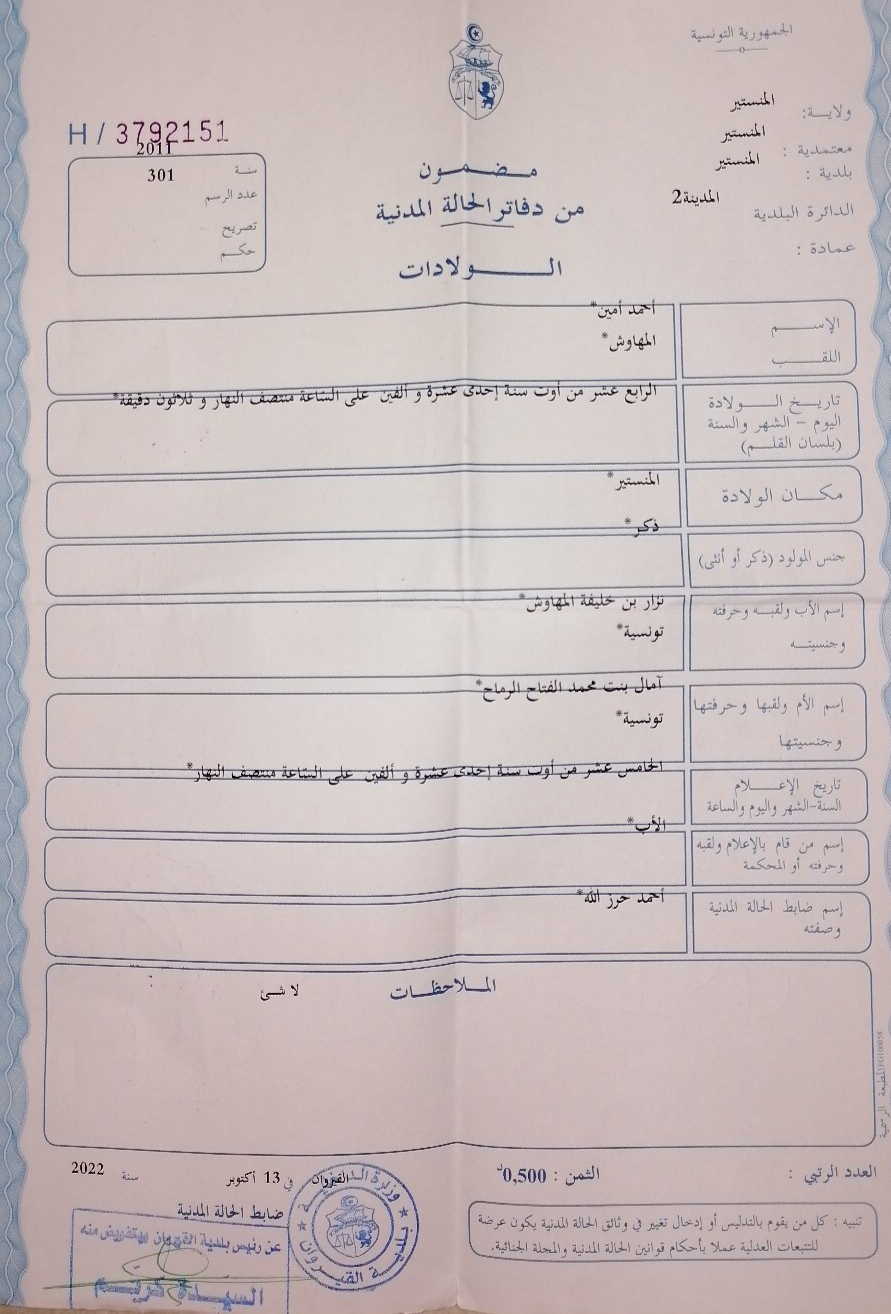 الجمهورية التونسية
ولايـــة: المنستير
معتمدية : المنستير
بلدية : المنستير
الدائرة البلدية المدينة2
عمادة :
H / 3792151
سنة 2011
عدد الرسم 301
تصريح
حكم
مضمون
من دفاتر الحالة المدنية
الولادات
الإسم أحمد أمين*
اللقب المهاوش*
تاريخ الولادة الرابع عشر من أوت سنة إحدى عشرة و ألفين على الساعة منتصف النهار و ثلاثون دقيقة*
اليوم - الشهر والسنة
(بلسان القلم)
مكان الولادة المنستير*
جنس المولود (ذكر أو أنثى) ذكر*
إسم الأب ولقبه وحرفته نزار بن خليفة المهاوش*
وجنسيته تونسية*
إسم الأم ولقبها وحرفتها آمال بنت محمد الفتاح الرماح*
وجنسيتها تونسية*
تاريخ الإعلام الخامس عشر من أوت سنة إحدى عشرة و ألفين على الساعة منتصف النهار*
السنة-الشهر واليوم والساعة
إسم من قام بالإعلام ولقبه الأب*
وحرفته أو المحكمة
إسم ضابط الحالة المدنية أحمد حرز الله*
وصفته
الملاحظات
لا شئ
العدد الرتبي :
الثمن : 0,500د
القيروان في 13 أكتوبر سنة 2022
ضابط الحالة المدنية
عن رئيس بلدية القيروان بتفويض منه
السيدة
القيروان
تنبيه : كل من يقوم بالتدليس أو إدخال تغيير في وثائق الحالة المدنية يكون عرضة
للتتبعات العدلية عملا بأحكام قوانين الحالة المدنية والمجلة الجنائية.
المطبعة الرسمية